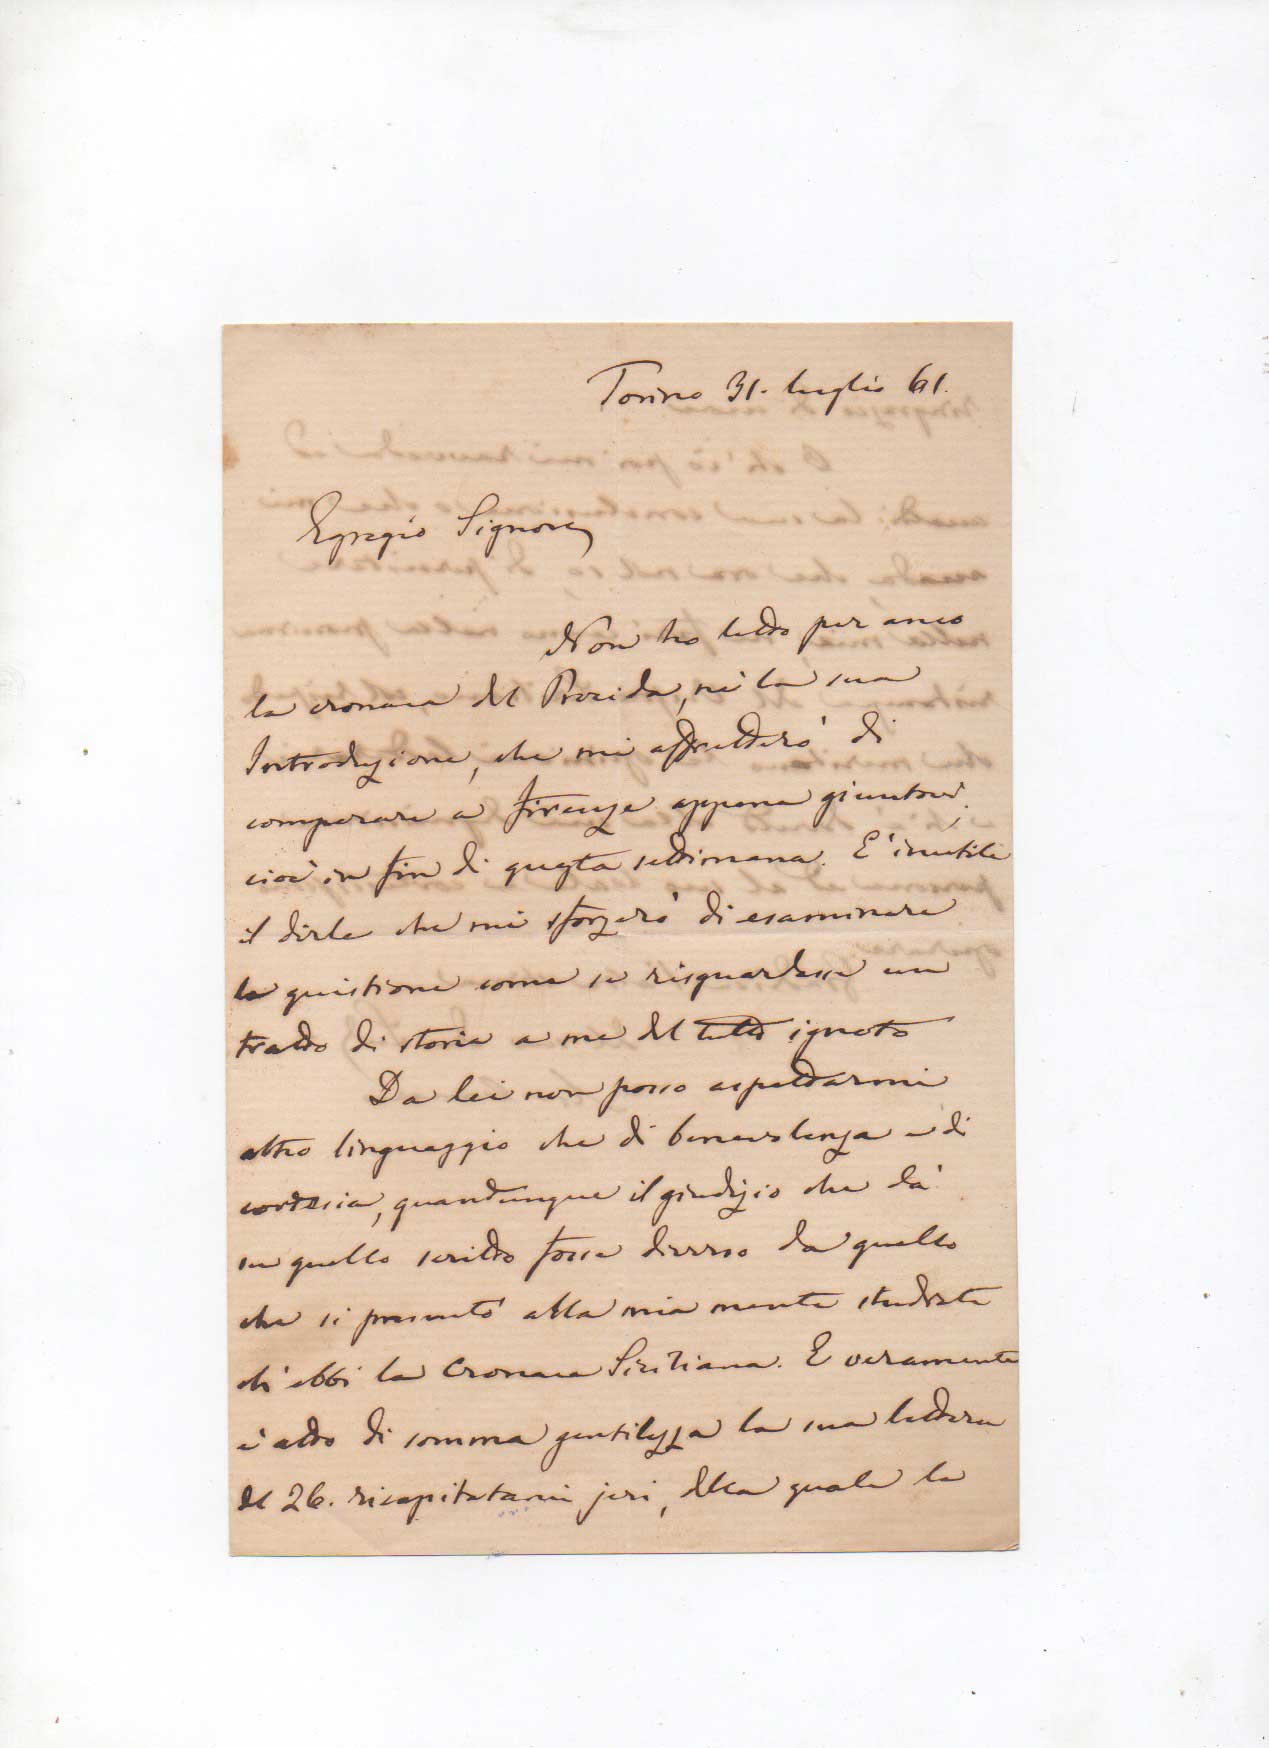 Torino 31. luglio 61.
Egregio Signore
Non ho letto per anco
la cronaca del Procida, nè la sua
Introduzione, che mi affretterò di
comperare a Firenze appena giuntovi,
cioè in fin di questa settimana. E' inutile
il dirle che mi sforzerò di esaminare
la quistione come se risguardasse un
tratto di storia a me del tutto ignoto
Da lei non posso aspettarmi
altro linguaggio che di benevolenza e di
cortesia, quandunque il giudizio che dà
su quello scritto fosse diverso da quello
che si presentò alla mia mente studiata
ch' ebbi la Cronaca Siciliana. E veramente
è atto di somma gentilezza la sua lettera
del 26. ricapitatami jeri, della quale la